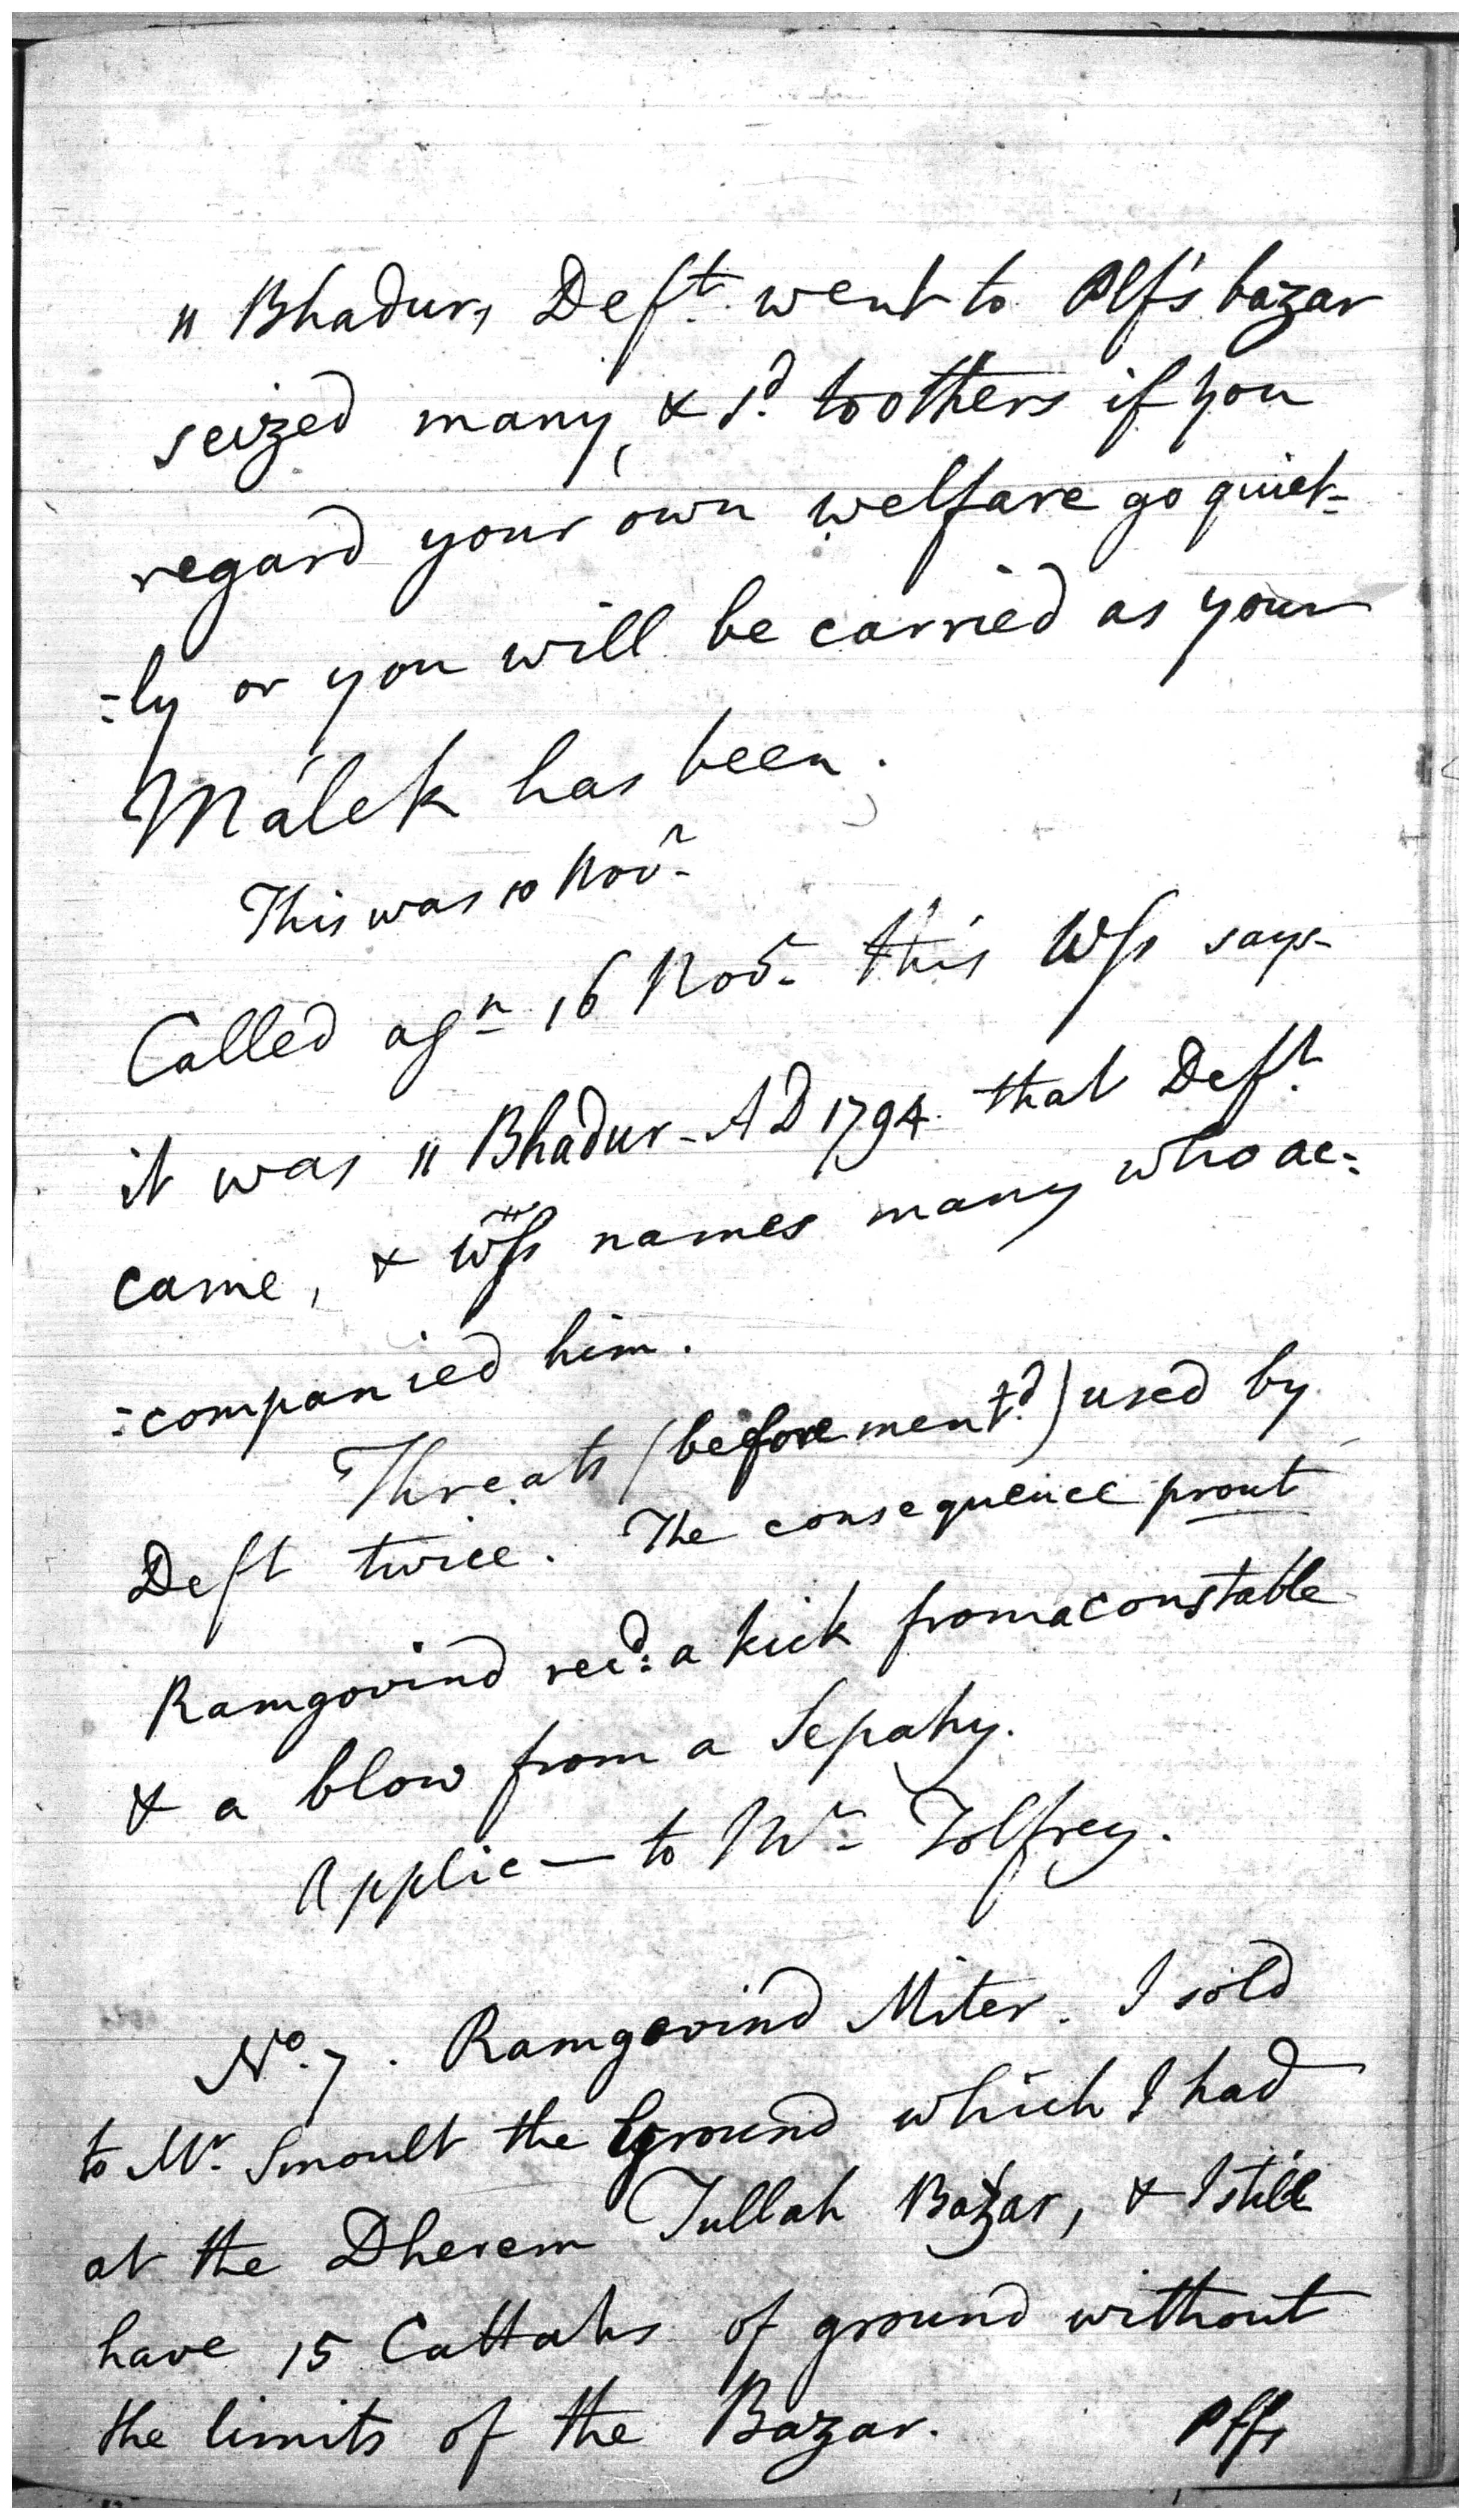 11 Bhadur, Deft. went to Plf's bazar
seized many, & sd. to others if you
regard your own welfare go quiet-
=ly or you will be carried as your
Málek has been.
This was 10 Novr.
Called agn. 16 Novr. this Wss says
it was 11 Bhadur - AD 1794. that Deft.
came, & Wss names many who ac=
=companied him.
Threats (before mentd.) used by
Deft twice. The consequence prout
Ramgovind recd: a kick from a constable
& a blow from a Sepahy.
Applic— to Mr. Tolfrey.
No. 7. Ramgovind Miter. I sold
to Mr. Smoult the ground which I had
at the Dherem Tullah Bazar, & I still
have 15 Cattahs of ground without
the limits of the Bazar. Plfs